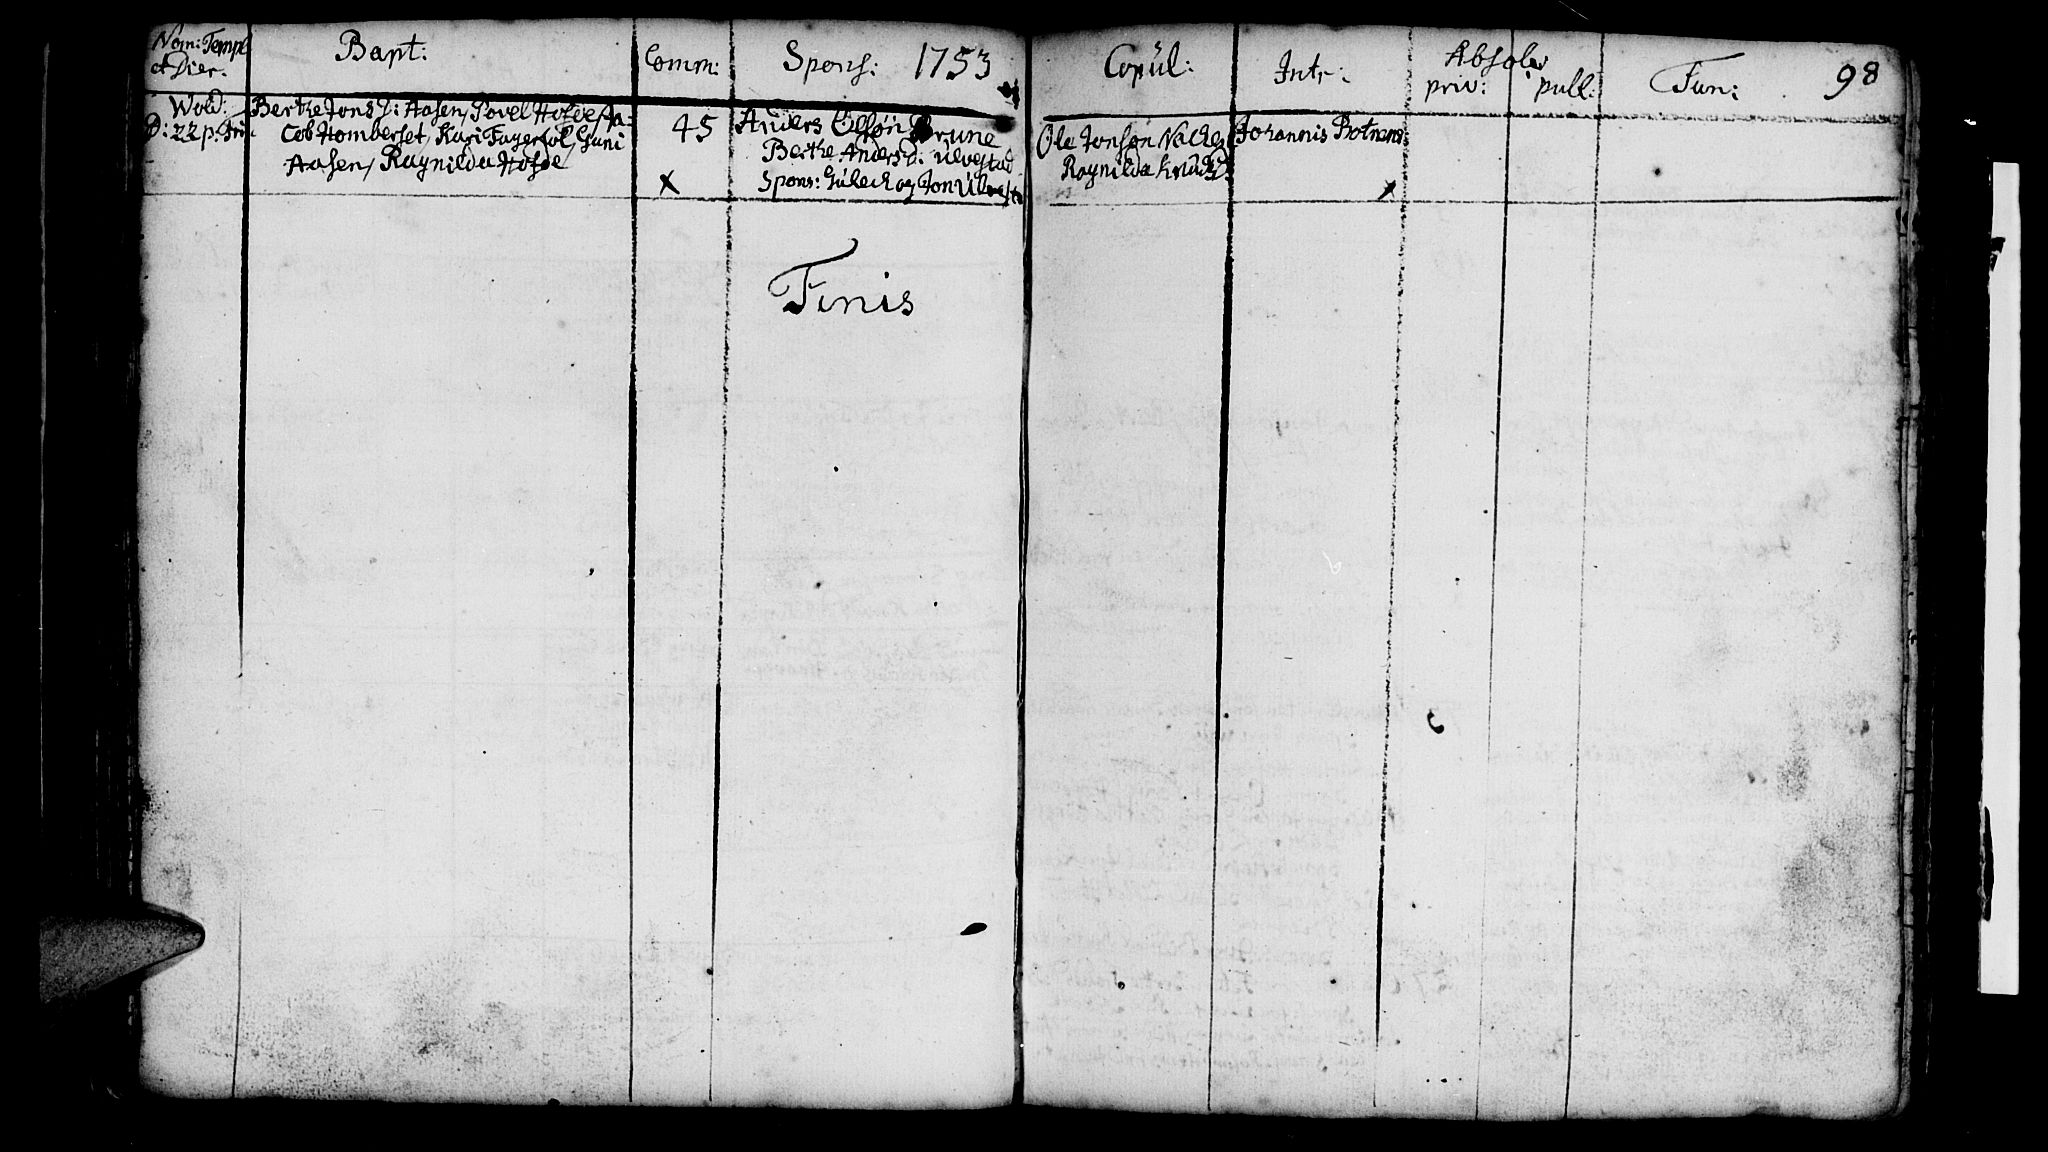 Nom: Templ
et Dier:
Bapt:
Comm:
Spons: 1753
Copúl:
Intr:
Absolv
priv: publ:
Fun:
98
Wold:
D: 22 p. Trin
Berthe Jons D: Aasen, Povel Hofde, Ja=
cob Homberset, Kari Fagerhol, Guni
Aasen, Raynilda Hofde
45
x
Anders Brune
Berthe Anders D: Ulvestad
Spons: Gúlech og Jon Ulvesta
Ole Jonsøn
Raynilda Knuds D:
Johannis Botnens
x
Finis